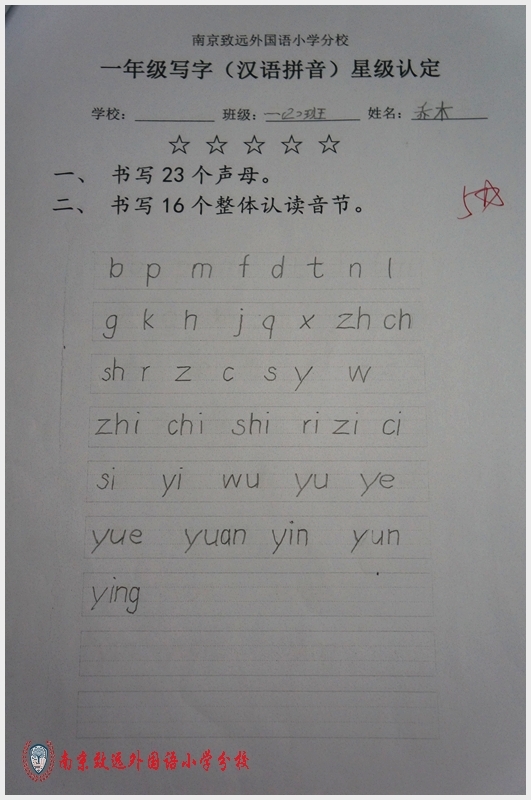 南京致远外国语小学分校
一年级写字（汉语拼音）星级认定
学校：__________ 班级：一(2)班 姓名：乔木
☆ ☆ ☆ ☆ ☆
一、 书写23个声母。
二、 书写16个整体认读音节。
5☆
b p m f d t n l
g k h j q x zh ch
sh r z c s y w
zhi chi shi ri zi ci
si yi wu yu ye
yue yuan yin yun
ying
南京致远外国语小学分校